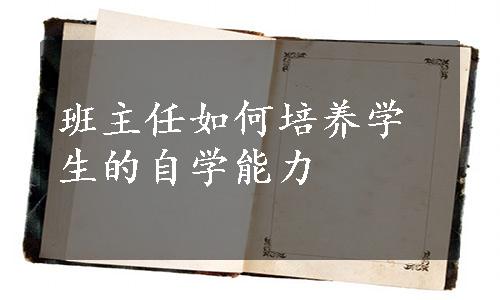 班主任如何培养学
生的自学能力